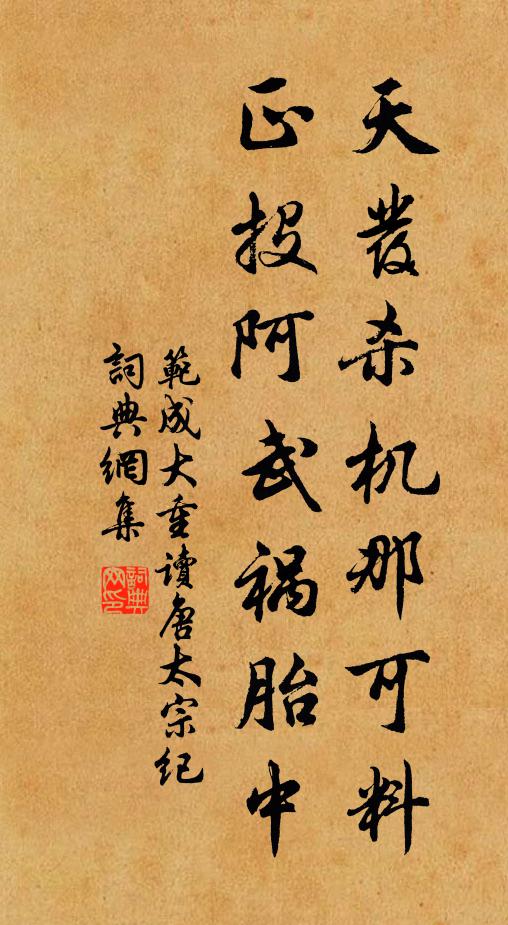 天發杀机那可料
正投阿武祸胎中
範成大重讀唐太宗纪
詞典網集
詞典网印